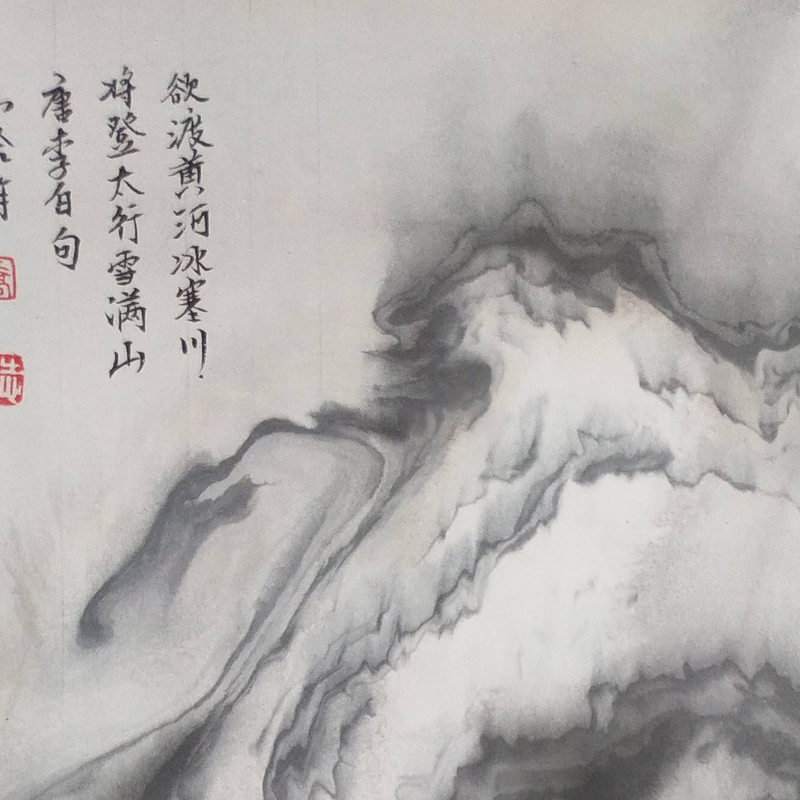 欲渡黄河冰塞川
将登太行雪满山
唐李白句